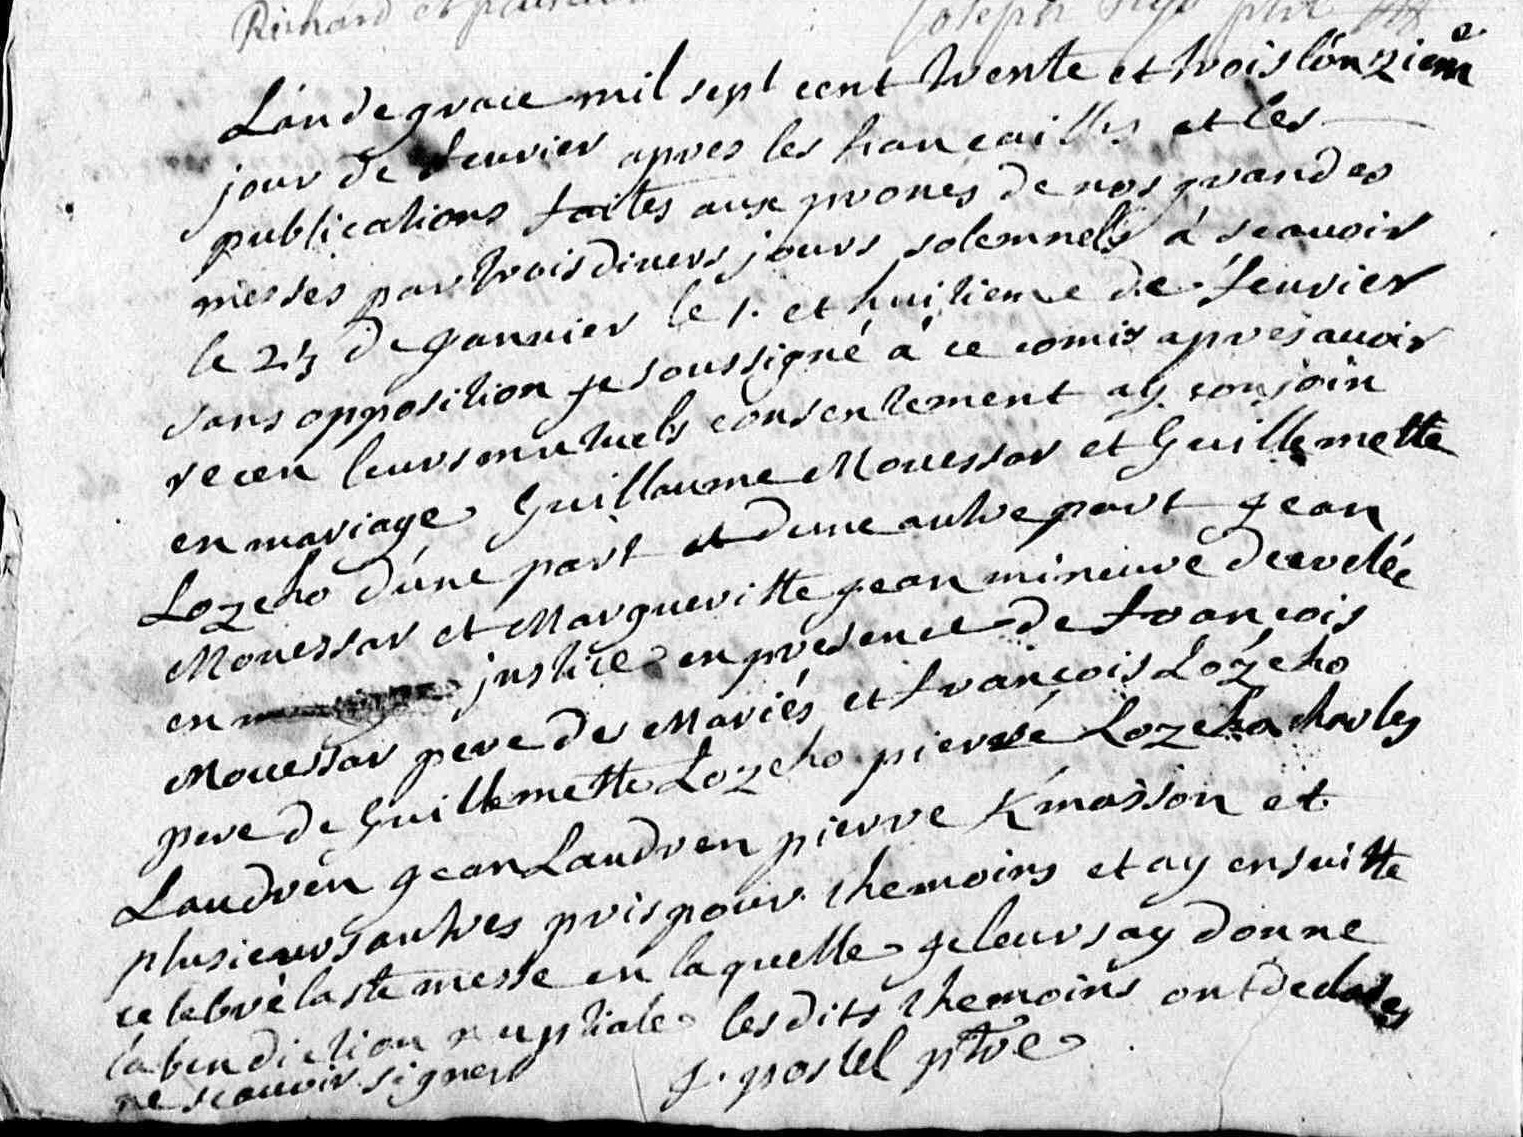 Richard et
Joseph
L'an de grace mil sept cent trente et trois l'onzieme
jour de feuvrier apres les fiançailles et les
publications faites aux prones de nos grandes
messes par trois divers jours solemnells á scavoir
le 25 de Janvier le 1. et huitieme de feuvrier
sans opposition je soussigné á ce comis apres avoir
receu leurs mutuels consentement ay conjoin
en mariage Guillaume Mouessar et Guillemette
Lozeho d'une part et d'une autre part Jean
Mouessar et Margueritte Jean mineure decretée
en justice en presence de François
Mouessar pere des Mariés et François Lozeho
pere de Guillemette Lozeho pierre Lozeho charles
Laudren Jean Laudren pierre K/masson et
plusieurs autres pris pour themoins et ay ensuitte
celebré la ste messe en laquelle je leurs ay donne
la bendiction nuptiale les dits themoins ont declares
ne scauvoir signer J. postel ptre